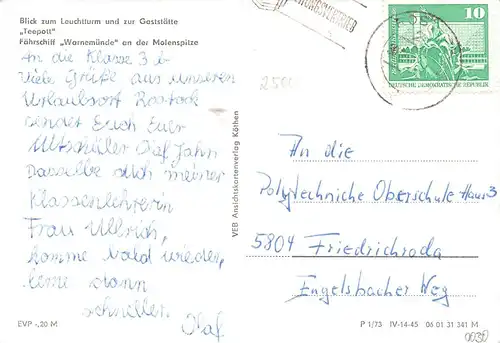 Blick zum Leuchtturm und zur Gaststätte
„Teepott"
Fährschiff „Warnemünde" an der Molenspitze
An die Klasse 3 b
Viele Grüße aus unserem
Urlaubsort Rostock
sendet Euch Euer
Mitschüler Olaf Jahn
Dasselbe auch meiner
Klassenlehrerin
Frau Ullrich,
komme bald wieder,
lerne dann
schneller.
Olaf
EVP -,20 M
VEB Ansichtskartenverlag Köthen
10
DEUTSCHE DEMOKRATISCHE REPUBLIK
An die
Polytechniche Oberschule Haus 3
5804 Friedrichroda
Engelsbacher Weg
P 1/73 IV-14-45 06 01 31 341 M